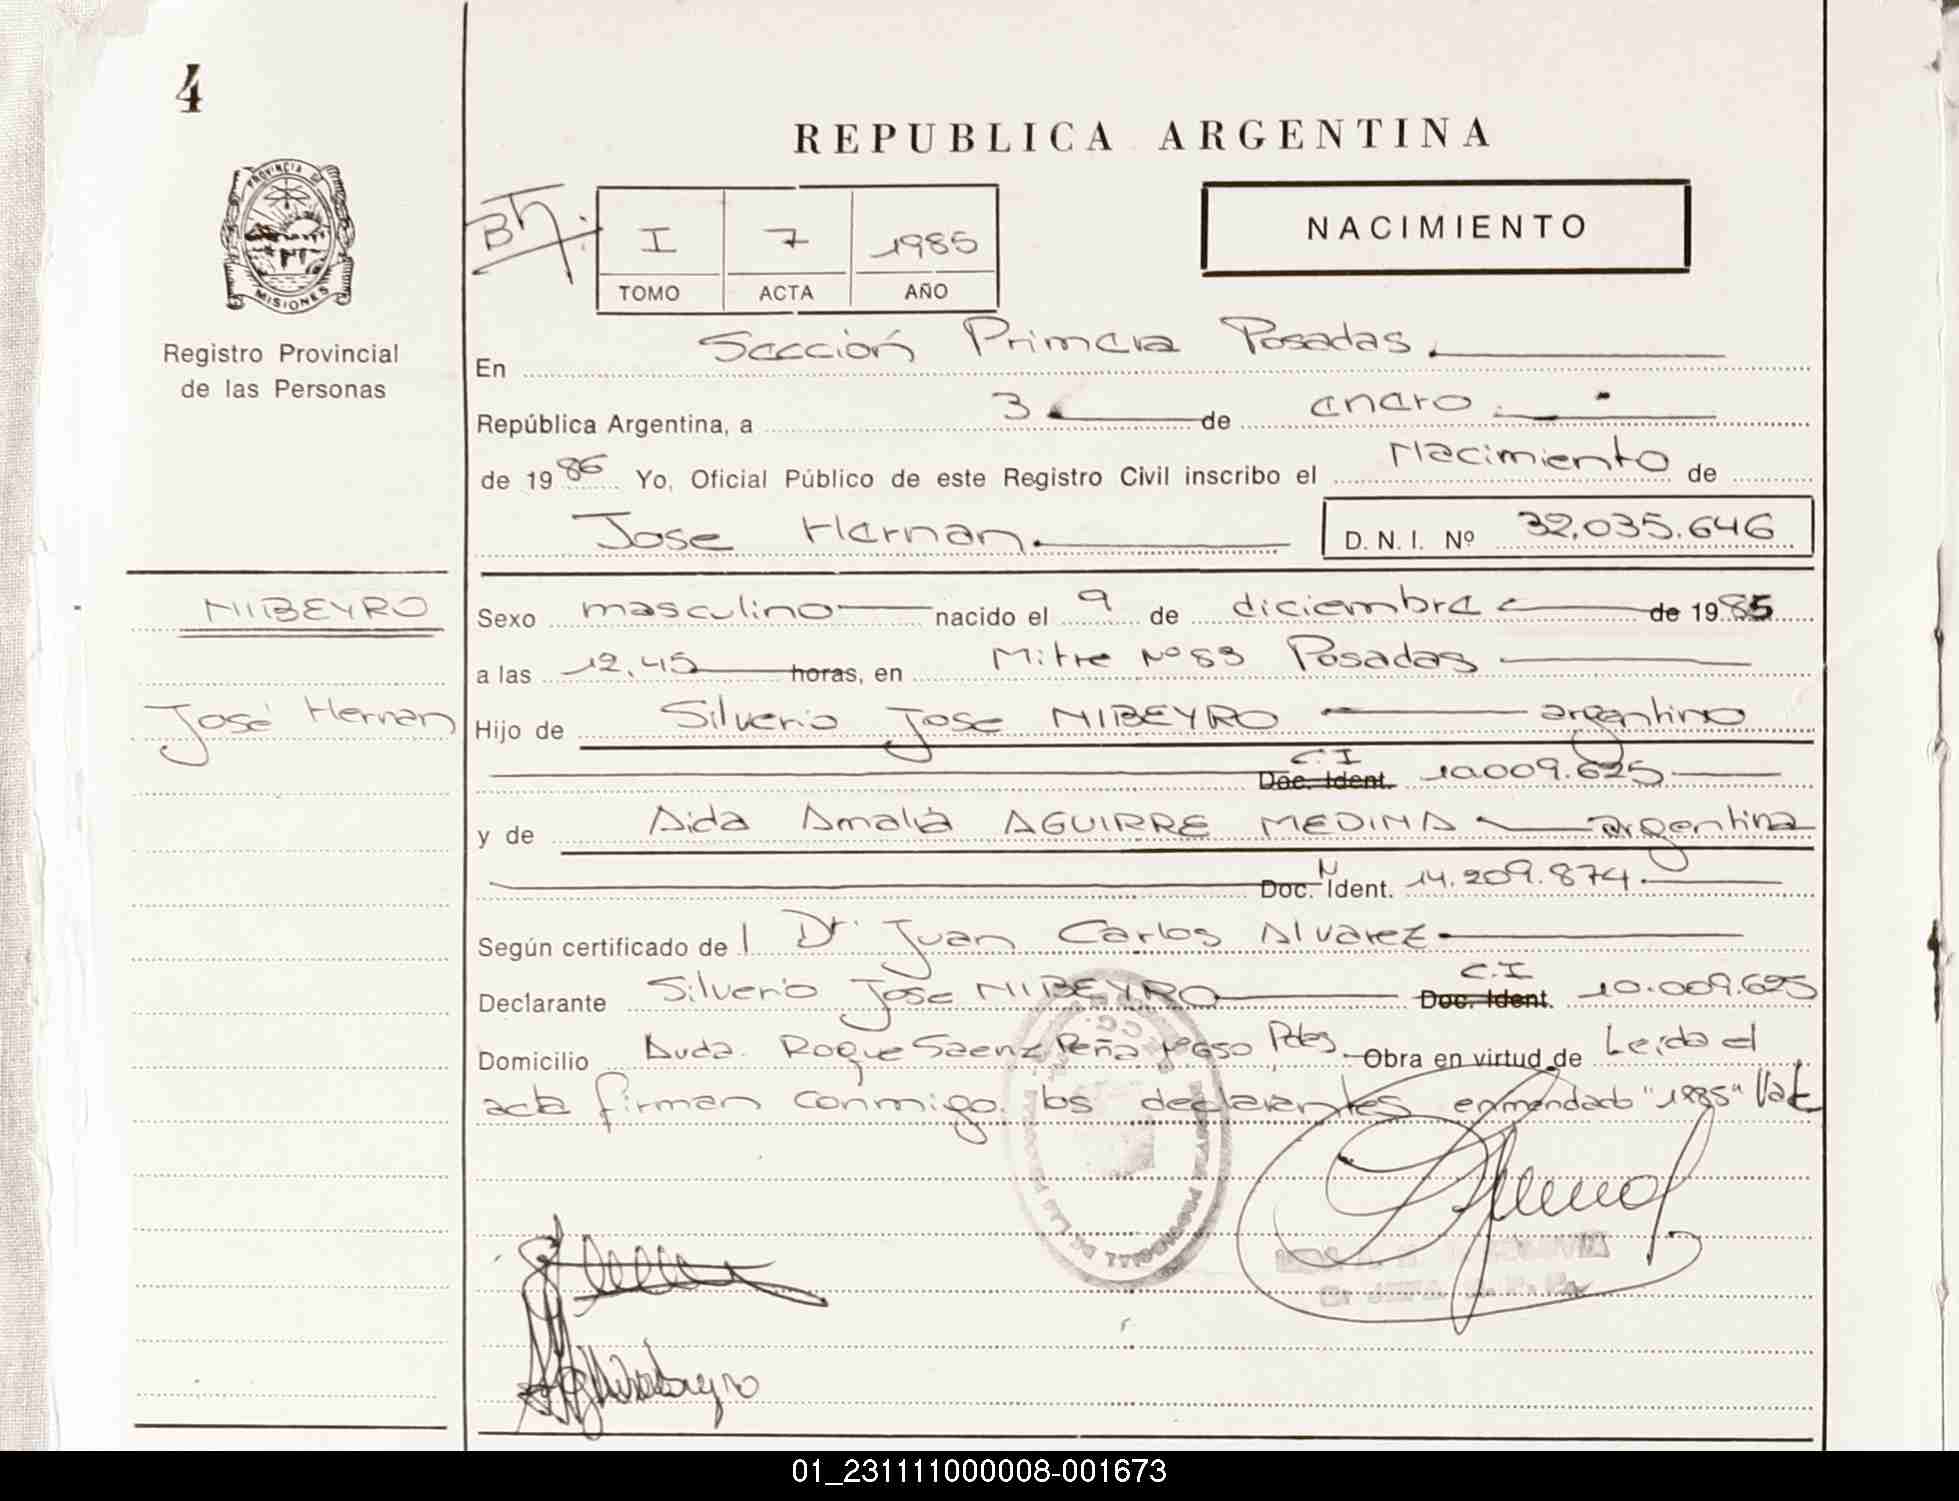 4
REPUBLICA ARGENTINA
PROVINCIA DE
MISIONES
Registro Provincial
de las Personas
I 7 1985
TOMO ACTA AÑO
NACIMIENTO
En Sección Primera Posadas
República Argentina, a 3 de enero
de 1986 Yo, Oficial Público de este Registro Civil inscribo el Nacimiento de
Jose Hernan D.N.I. Nº 32.035.646
NIBEYRO
José Hernan
Sexo masculino nacido el 9 de diciembre de 1985
a las 12,45 horas, en Mitre Nº 83 Posadas
Hijo de Silverio Jose NIBEYRO argentino
C.I
Doc. Ident. 10.009.625
y de Aida Amalia AGUIRRE MEDINA argentina
N
Doc. Ident. 14.209.874
Según certificado de l Dr. Juan Carlos Alvarez
C.I
Declarante Silverio Jose NIBEYRO Doc. Ident. 10.009.625
Domicilio Avda. Roque Saenz Peña Pdas. Obra en virtud de Leida el
acta firman conmigo los declarantes enmendado "1985" Vale
01_231111000008-001673